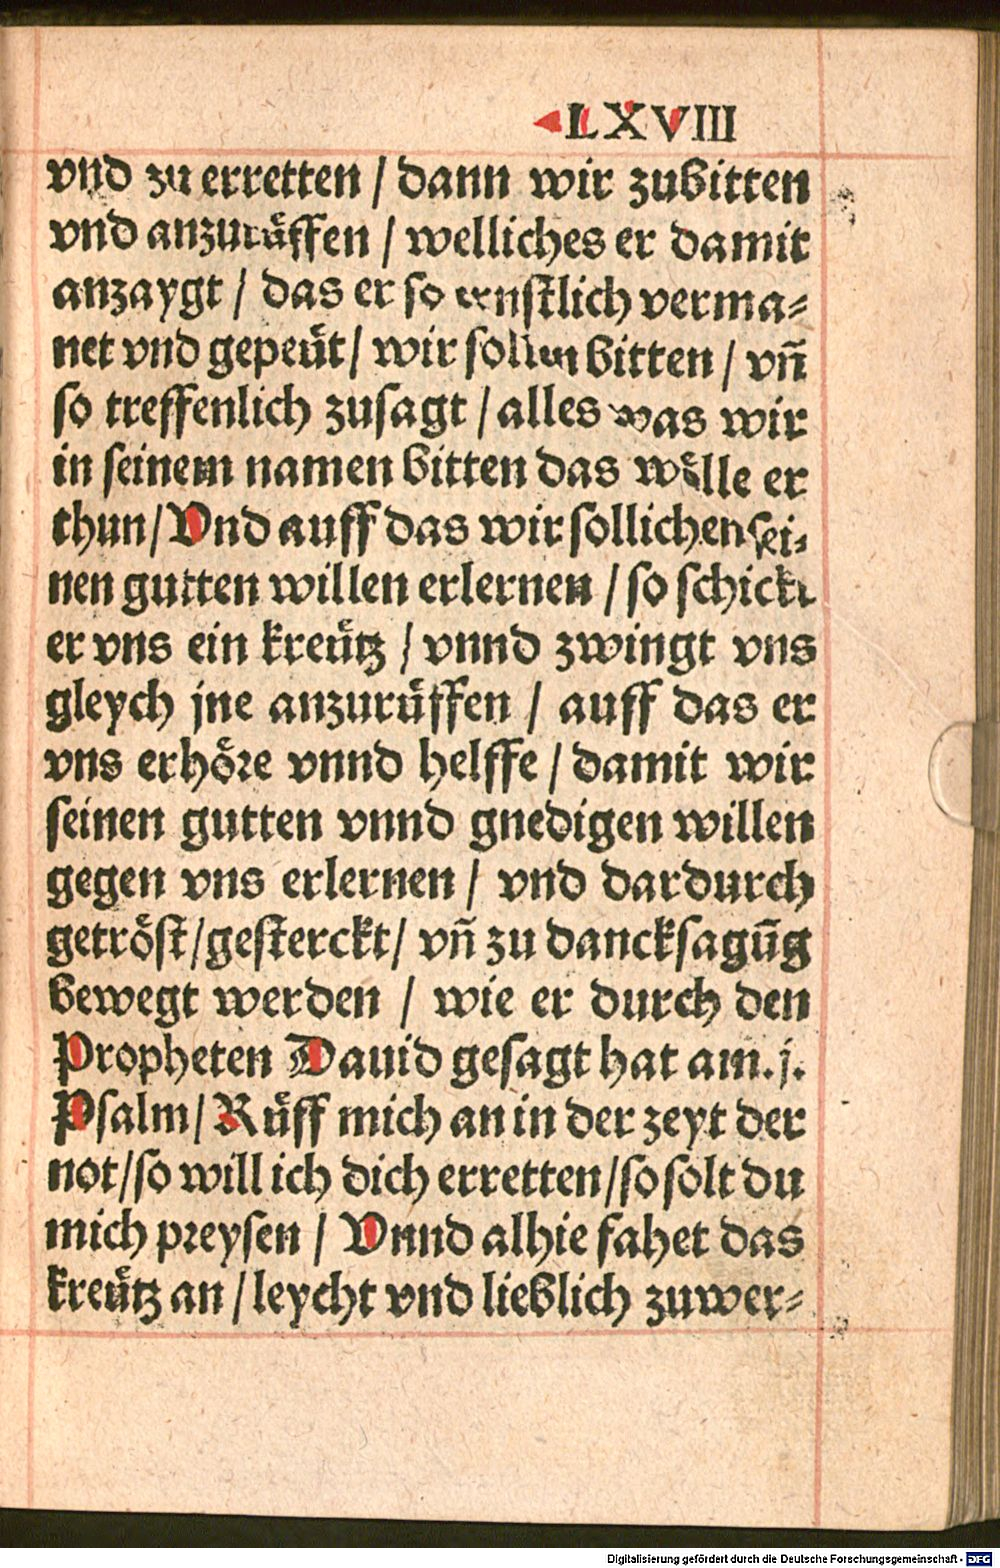 LXVIII
vnd zu erretten / dann wir zubitten
vnd anzurüffen / welliches er damit
anzaygt / das er so ernstlich verma⸗
net vnd gepeüt / wir sollen bitten / vñ
so treffenlich zusagt / alles was wir
in seinem namen bitten das wölle er
thun / Vnd auff das wir sollichen sei⸗
nen gutten willen erlernen / so schickt
er vns ein kreütz / vnnd zwingt vns
gleych jne anzurüffen / auff das er
vns erhöre vnnd helffe / damit wir
seinen gutten vnnd gnedigen willen
gegen vns erlernen / vnd dardurch
getröst / gesterckt / vñ zu dancksagūg
bewegt werden / wie er durch den
Propheten Dauid gesagt hat am .j.
Psalm / Rüff mich an in der zeyt der
not / so will ich dich erretten / so solt du
mich preysen / Vnnd alhie fahet das
kreütz an / leycht vnd lieblich zuwer⸗
Digitalisierung gefördert durch die Deutsche Forschungsgemeinschaft - DFG